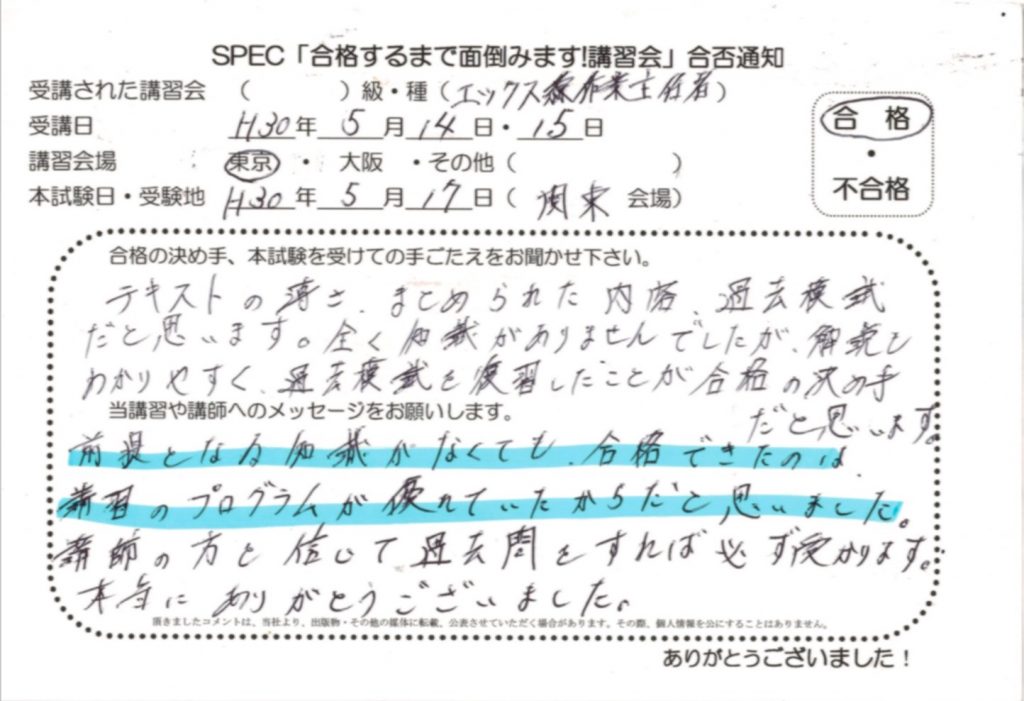 SPEC「合格するまで面倒みます!講習会」合否通知
受講された講習会 （ ）級・種（エックス線作業主任者）
受講日 H30年 5月14日・15日
合 格
・
不合格
講習会場 東京 ・ 大阪 ・その他（ ）
本試験日・受験地 H30年 5月17日（ 関東 会場）
合格の決め手、本試験を受けての手ごたえをお聞かせ下さい。
テキストの薄さ、まとめられた内容、過去模試
だと思います。全く知識がありませんでしたが、解説も
わかりやすく、過去模試を復習したことが合格の決め手
だと思います。
当講習や講師へのメッセージをお願いします。
前提となる知識がなくても、合格できたのは、
講習のプログラムが優れていたからだと思いました。
講師の方を信じて過去問をすれば必ず受かります。
本当にありがとうございました。
頂きましたコメントは、当社より、出版物・その他の媒体に転載、公表させていただく場合があります。その際、個人情報を公にすることはありません。
ありがとうございました！